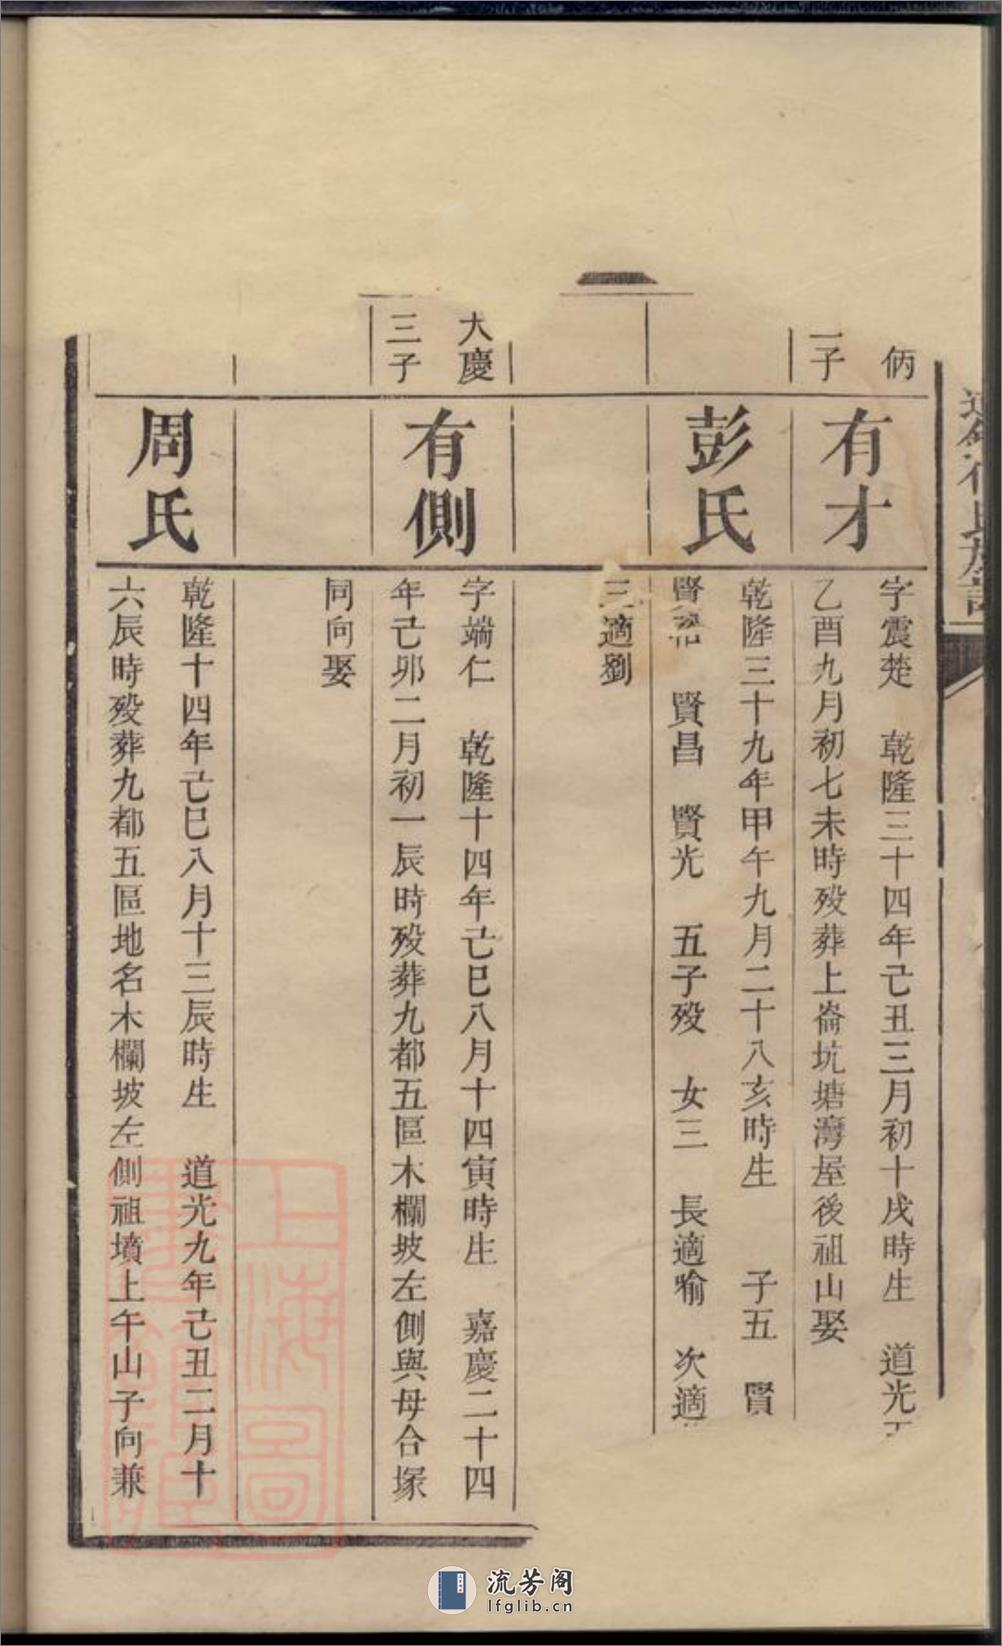 氏族譜
炳
一子
有才
字震楚　乾隆三十四年己丑三月初十戌時生　道光五
乙酉九月初七未時殁葬上崙坑塘灣屋後祖山娶
彭氏
乾隆三十九年甲午九月二十八亥時生　子五　賢
賢　賢昌　賢光　五子殁　女三　長適喻　次適
三適劉
大慶
三子
有側
字端仁　乾隆十四年己巳八月十四寅時生　嘉慶二十四
年己卯二月初一辰時殁葬九都五區木欄坡左側與母合塚
同向娶
周氏
乾隆十四年己巳八月十三辰時生　道光九年己丑二月十
六辰時殁葬九都五區地名木欄坡左側祖墳上午山子向兼
上海圖
書館藏
流芳阁
lfglib.cn